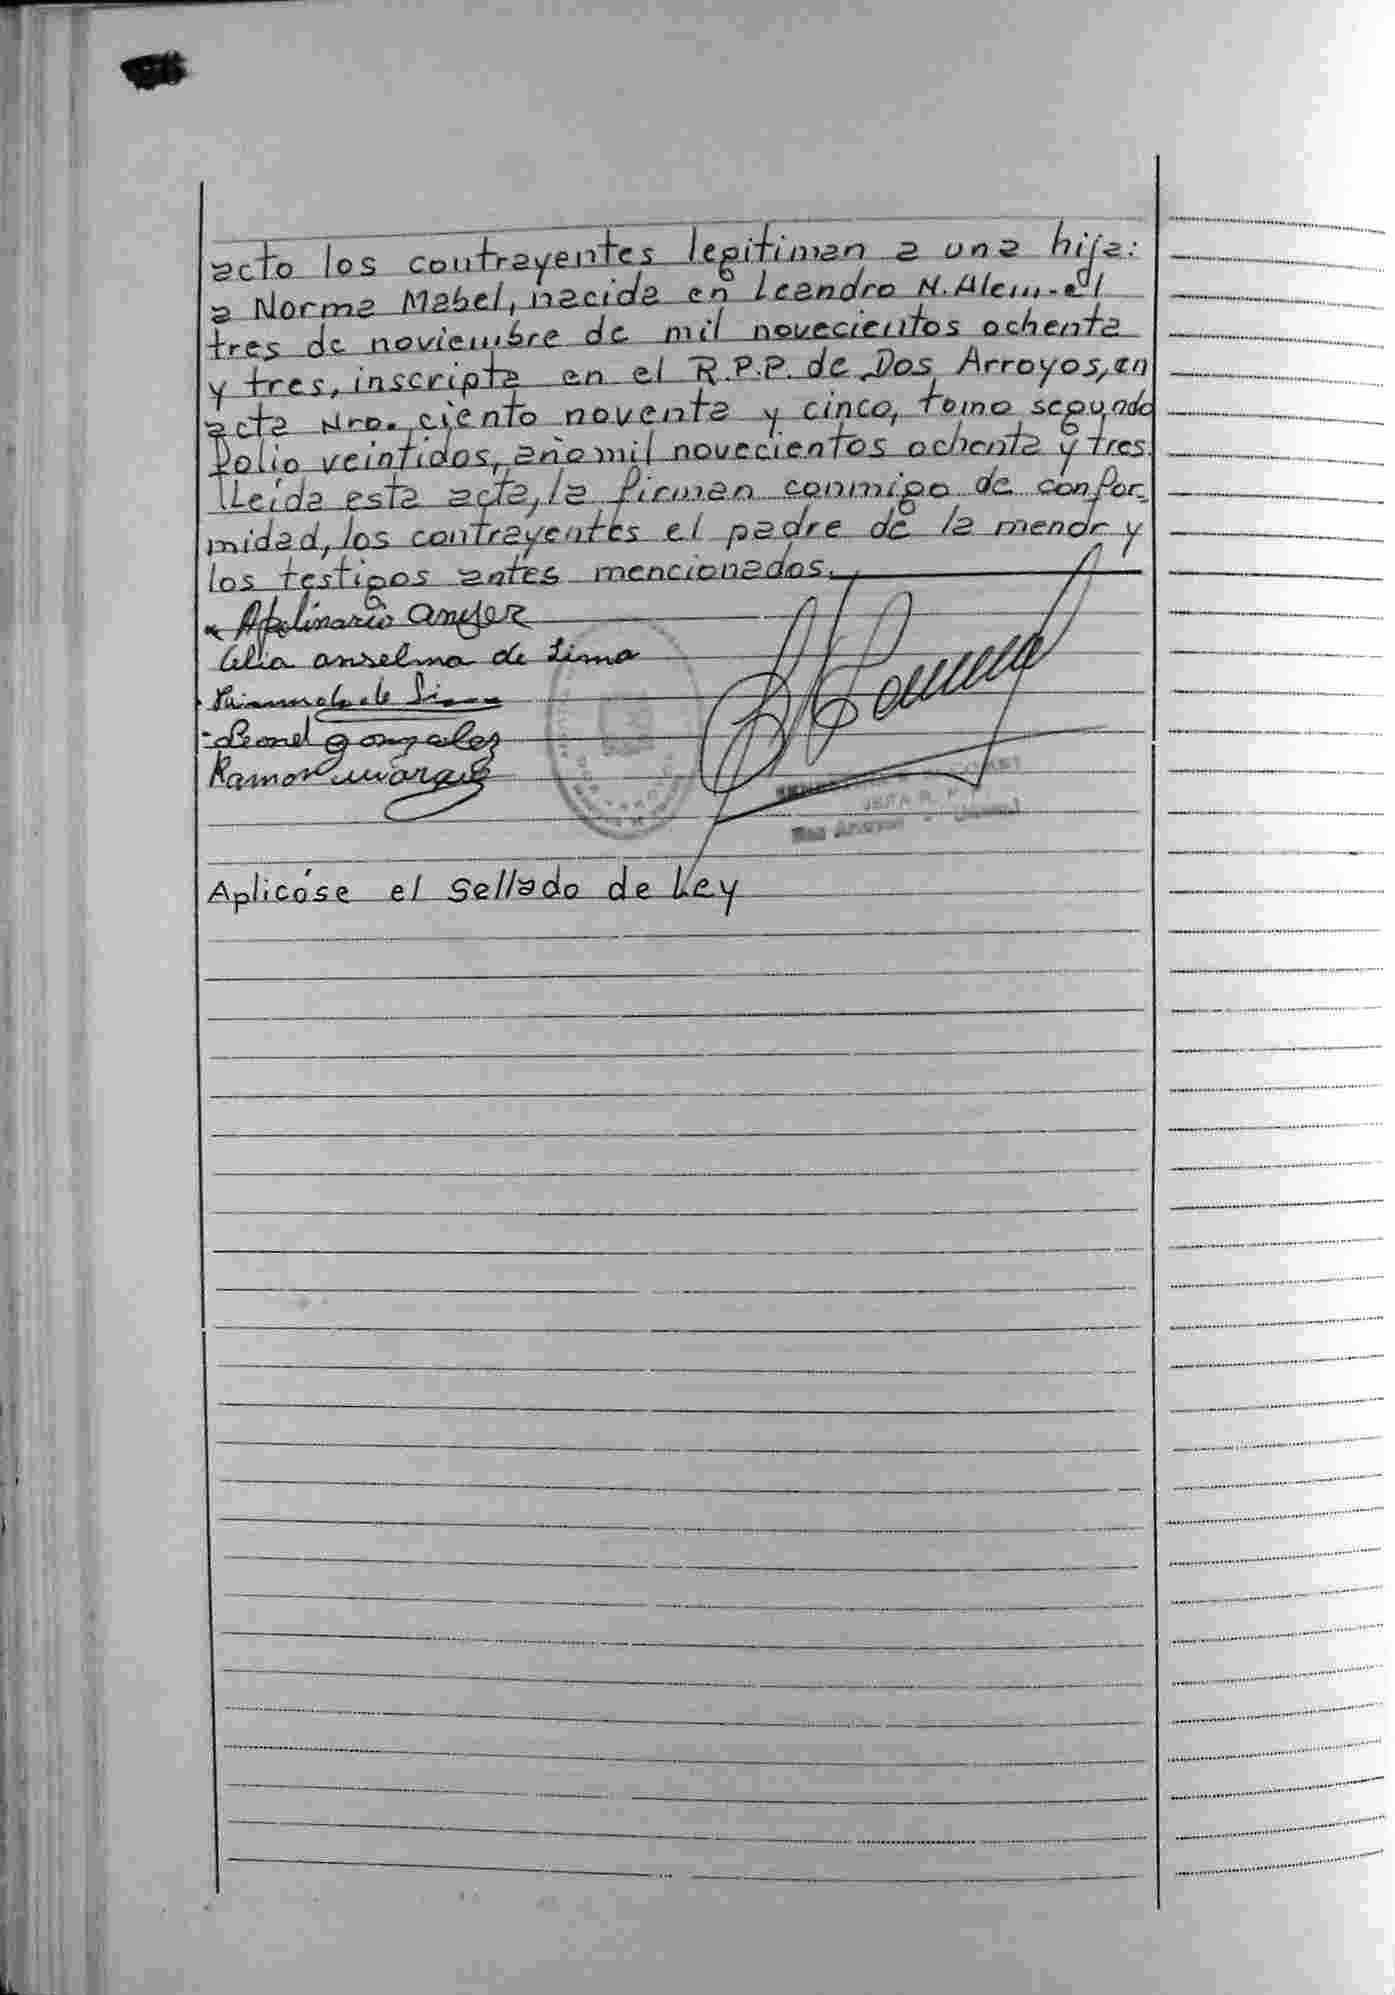 acto los contrayentes legitiman a una hija:
a Norma Mabel, nacida en Leandro N. Alem-el
tres de noviembre de mil novecientos ochenta
y tres, inscripta en el R.P.P. de Dos Arroyos, en
acta Nro. ciento noventa y cinco, tomo segundo
folio veintidos, año mil novecientos ochenta y tres.
Leída esta acta, la firman conmigo de confor-
midad, los contrayentes el padre de la menor y
los testigos antes mencionados.
Apolinario
Celia anselma de Lima
de Lima
Leonel gonzalez
Ramon
JEFA R. P.
Dos Arroyos -
Aplicóse el sellado de Ley